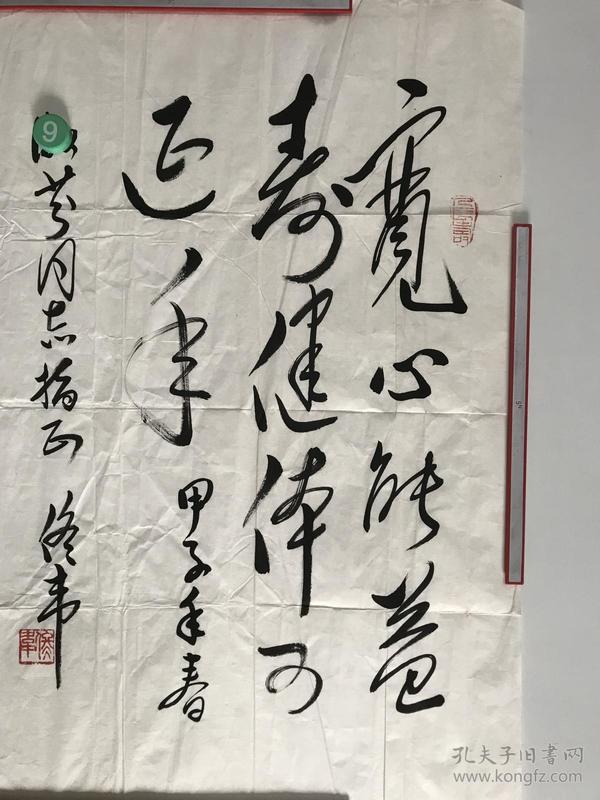 寬心能益
壽健体可
延年
甲子年春
芬同志指正
佟韦
9
孔夫子旧書网
www.kongfz.com